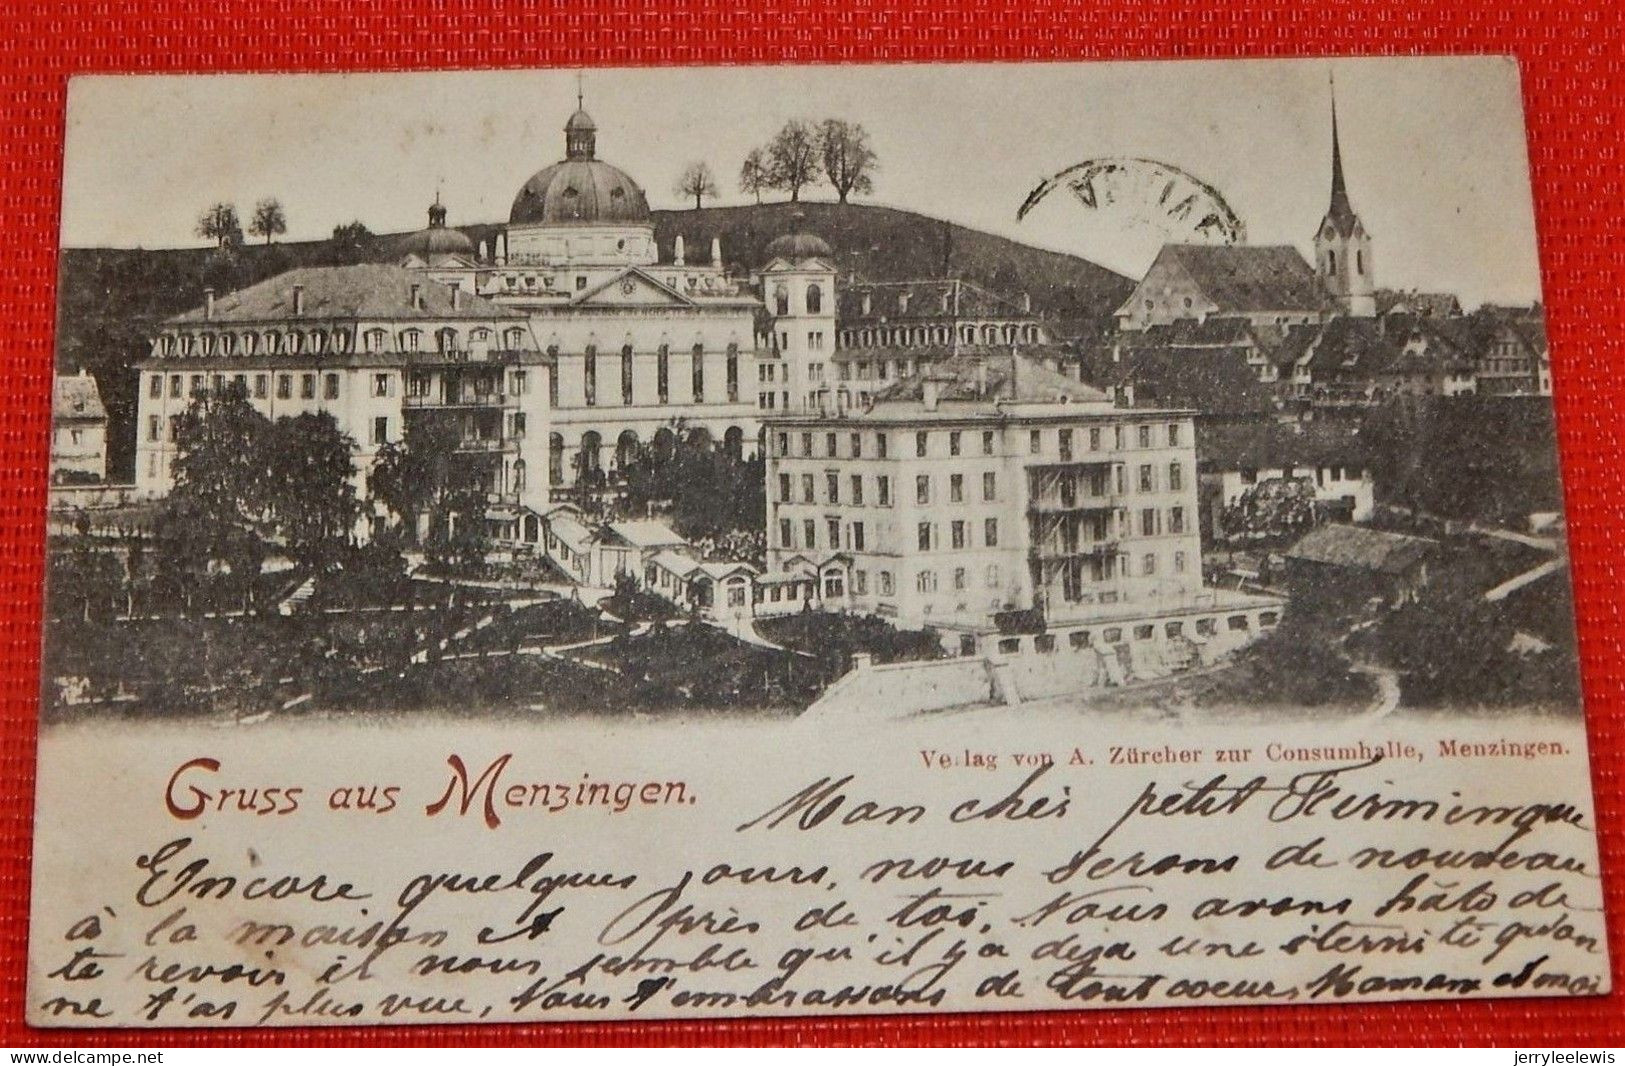 Verlag von A. Zürcher zur Consumhalle, Menzingen.
Gruss aus Menzingen.
Mon cher petit
Encore quelques jours, nous serons de nouveau
à la maison et Près de toi, Nous avons hâte de
te revoir il nous semble qu'il y a déja une éternité qu'on
ne t'as plus vue, Nous t'embrassons de tout coeur, Maman et moi
delcampe.net
jerryleelewis